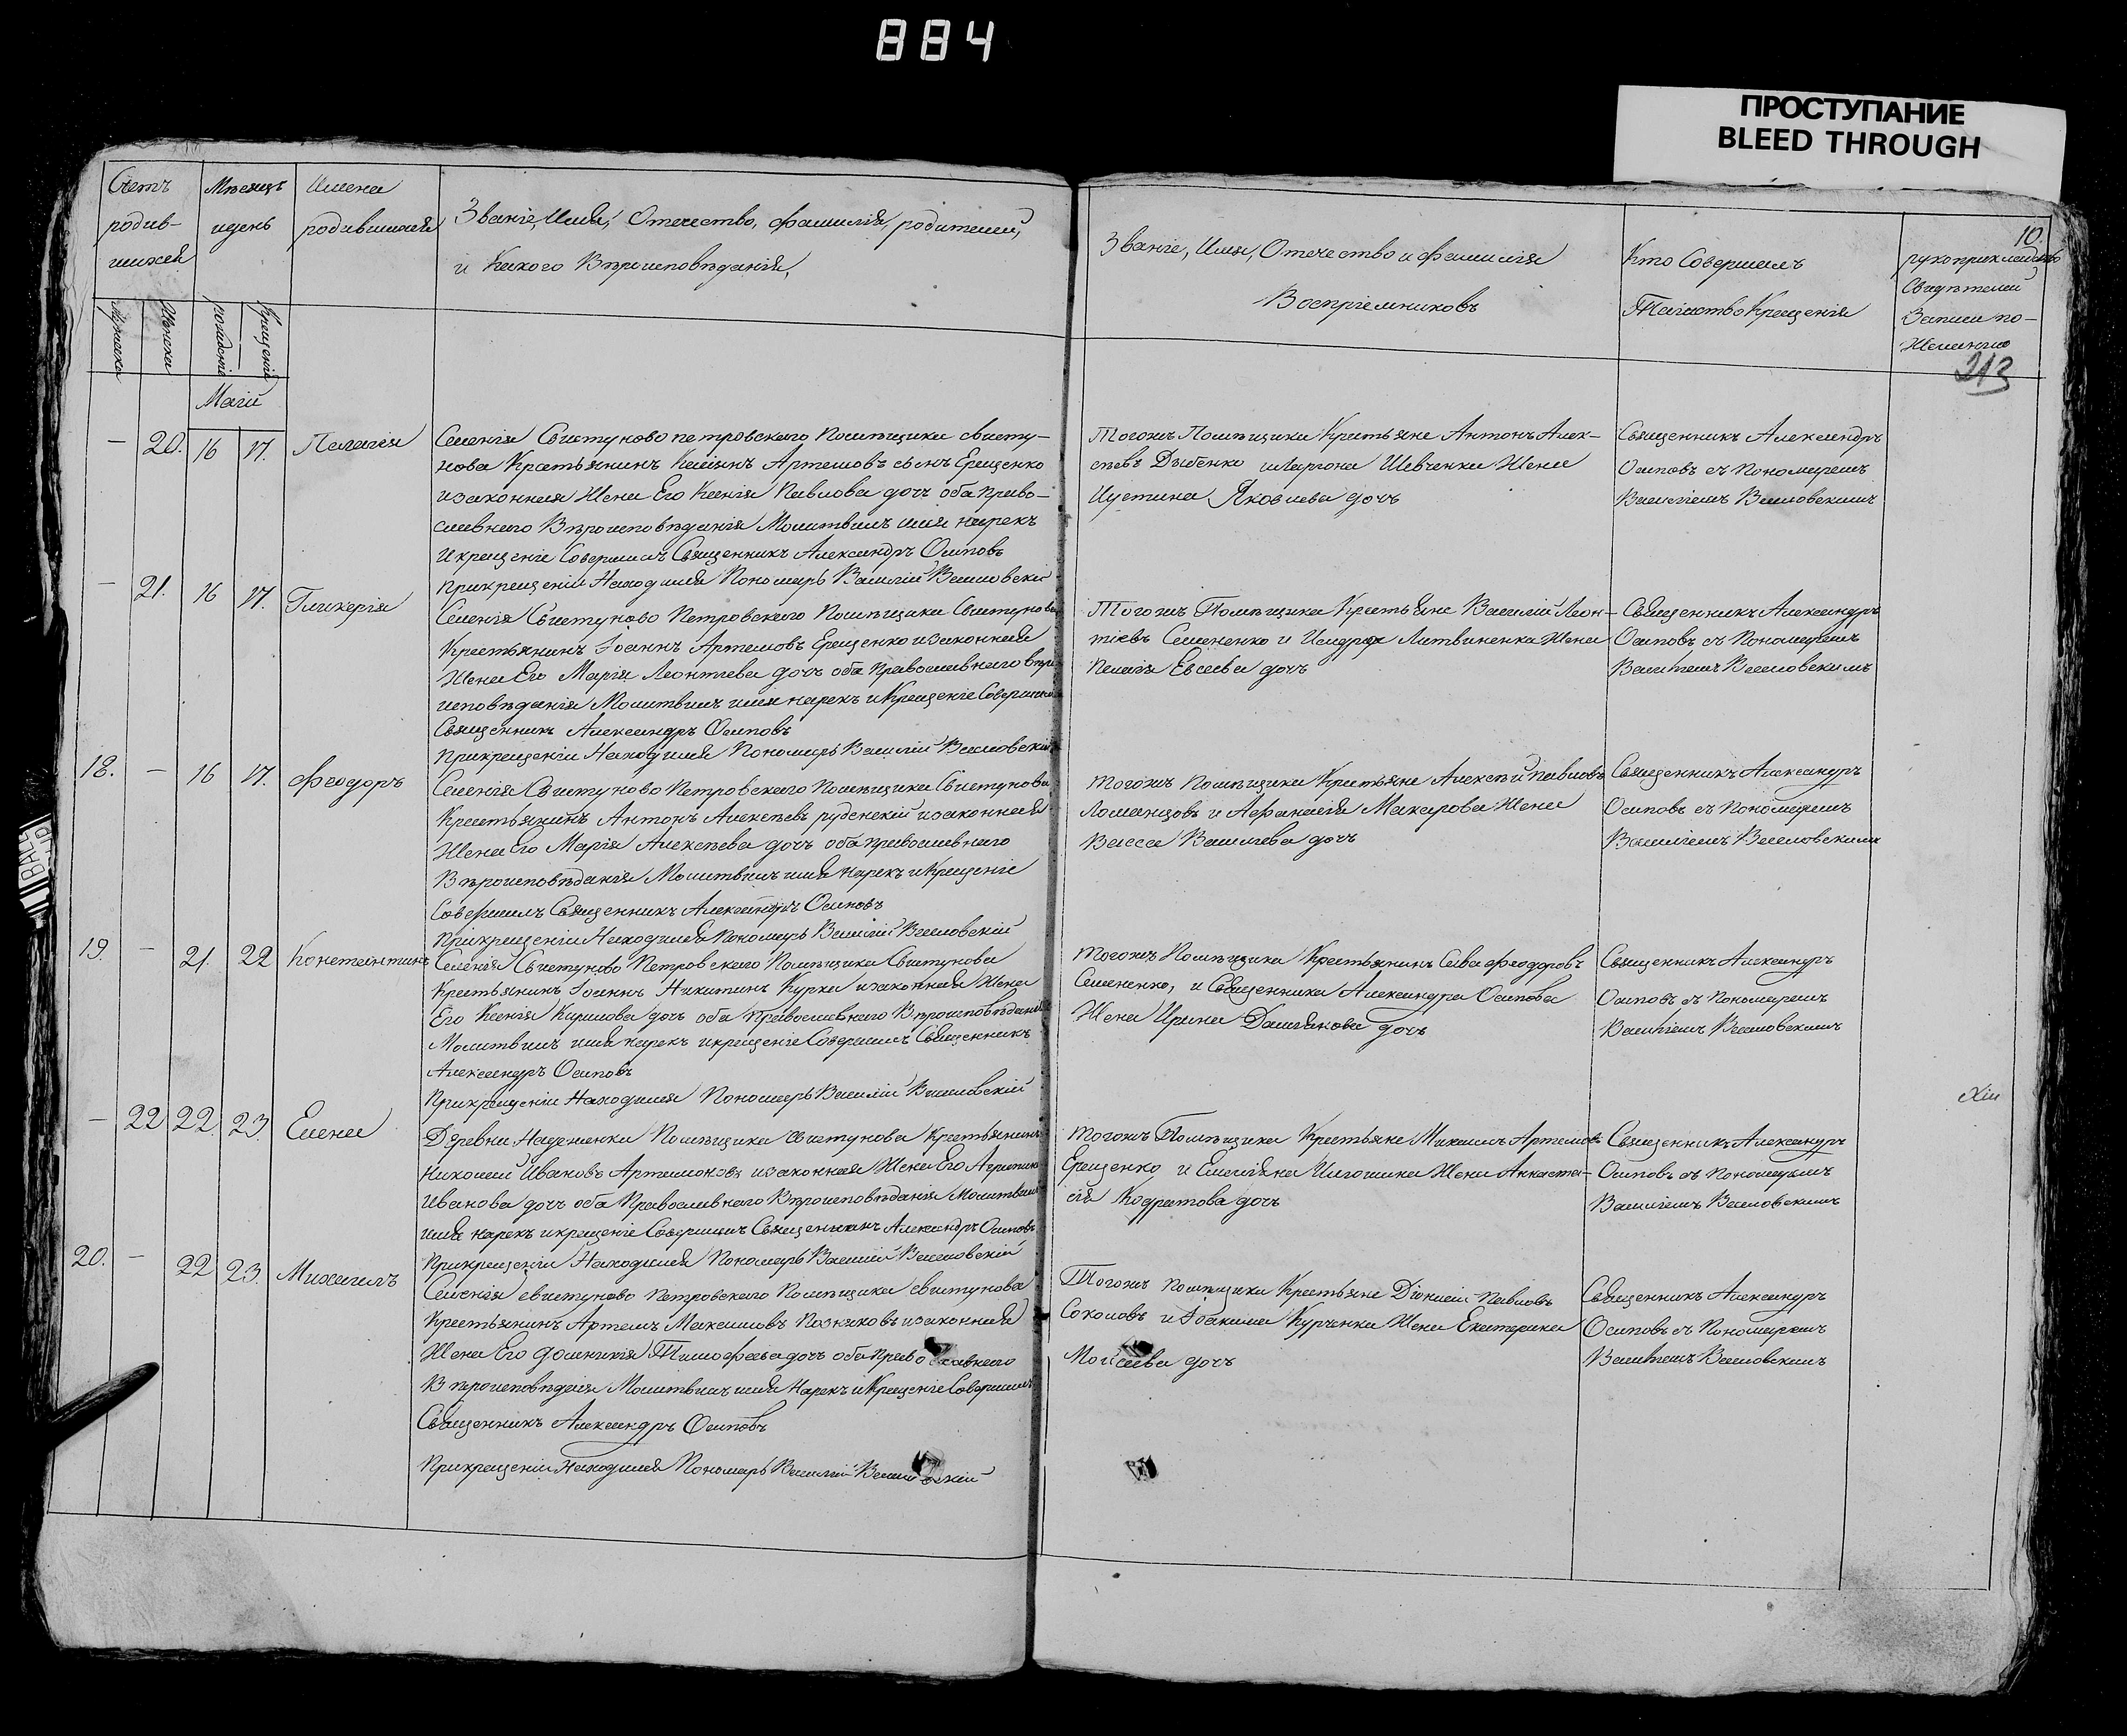 884
ПРОСТУПАНИЕ
BLEED THROUGH
Счетъ
родив-
шихся
Мѣсяцъ
идень
Имена
родившихся
Званіе, Имя, Отечество, фамилія, родителей,
и Какого Вѣроисповѣданія,
Званіе, Имя, Отечество и фамилія
Воспріемниковъ
Кто Совершалъ
Таинство Крещенія
10.
рукоприкладство
Свидѣтелей
Записи по-
Желанію
213
Женска
рожденія
Крещенія
Маія
— 20. 16 17. Пелагія
Селенія Свистуново петровскаго Помѣщика свисту-
нова Крестьянинъ Артемовъ сынъ Ерещенко
изаконная Жена Его Ксенія Павлова дочь оба право-
славнаго Вѣроисповѣданія Молитвилъ имя нарекъ
Икрещеніе Совершилъ Священникъ Александръ Осиповъ
прикрещеніи Находился Пономарь Василій Веселовскій
Тогожъ Помѣщика Крестьяне Антонъ Алек-
сѣевъ Дыбенко Шевченка Жена
Иустина Яковлева дочь
Священникъ Александръ
Осиповъ съ Пономаремъ
Василіемъ Веселовскимъ
— 21. 16 17. Гликерія
Селенія Свистуново Петровскаго Помѣщика Свистунова
Крестьянинъ Іоаннъ Артемовъ Ерещенко изаконная
Жена Его Марія Леонтіева дочь оба православнаго вѣро
исповѣданія Молитвилъ имя нарекъ и Крещеніе Совершилъ
Священникъ Александръ Осиповъ
прикрещеніи Находился Пономарь Василій Веселовскій
Тогожъ Помѣщика Крестьяне Василій Леон-
тіевъ Семененко и Литвиненка Жена
Пелагія Евсеева дочь
Священникъ Александръ
Осиповъ съ Пономаремъ
Василіемъ Веселовскимъ
18. — 16 17. Феодоръ
Селенія Свистуново Петровскаго Помѣщика Свистунова
Крестьянинъ Антонъ Алексѣевъ руденскій изаконная
Жена Его Марія Алексѣева дочь оба православнаго
Вѣроисповѣданія Молитвилъ имя Нарекъ и Крещеніе
Совершилъ Священникъ Александръ Осиповъ
прикрещеніи Находился Пономарь Василій Веселовскій
тогожъ Помѣщика Крестьяне Алексѣй павловъ
Ломанцовъ и Афанасія Макарова Жена
Васса Василева дочь
Священникъ Александръ
Осиповъ съ Пономаремъ
Василіемъ Веселовскимъ
19. — 21. 22 Константинъ
Селенія Свистуново Петровскаго Помѣщика Свистунова
Крестьянинъ Іоаннъ Никитинъ Курка изаконная Жена
Его Ксенія Кирилова дочь оба Православнаго Вѣроисповѣданія
Молитвилъ имя нарекъ икрещеніе Совершилъ Священникъ
Александръ Осиповъ
Прикрещеніи Находился Пономарь Василій Веселовскій
тогожъ Помѣщика Крестьянинъ Сава феодоровъ
Семененко, и Священника Александра Осипова
Жена Ирина Даміянова дочь
Священникъ Александръ
Осиповъ съ Пономаремъ
Василіемъ Веселовскимъ
— 22 22. 23. Елена
Деревни Надеженки Помѣщика Свистунова Крестьянинъ
Николай Ивановъ Артимоновъ изаконная Жена Его
Иванова дочь оба Православнаго Вѣроисповѣданія Молитвилъ
имя нарекъ икрещеніе Совершилъ Священникъ Александръ Осиповъ
Прикрещеніи Находился Пономарь Василій Веселовскій
тогожъ Помѣщика Крестьяне Михаилъ Артемовъ
Ерещенко и Емеліяна Жена Анаста-
сія Кодратова дочь
Священникъ Александръ
Осиповъ съ Пономаремъ
Василіемъ Веселовскимъ
20. — 22 23. Михаилъ
Селенія свистуново Петровскаго Помѣщика свистунова
Крестьянинъ Артемъ Максимовъ Позняковъ изаконная
Жена Его Домникія Тимофеева дочь оба Православнаго
Вѣроисповѣдція Молитвилъ имя Нарекъ и Крещеніе Совершилъ
Священникъ Александръ Осиповъ
Прикрещеніи Находился Пономарь Василій Веселовскій
Тогожъ помѣщика Крестьяне Діонисій Павловъ
Соколовъ и Іоакима Курченка Жена Екатерина
Моисеева дочь
Священникъ Александръ
Осиповъ съ Пономаремъ
Василіемъ Веселовскимъ